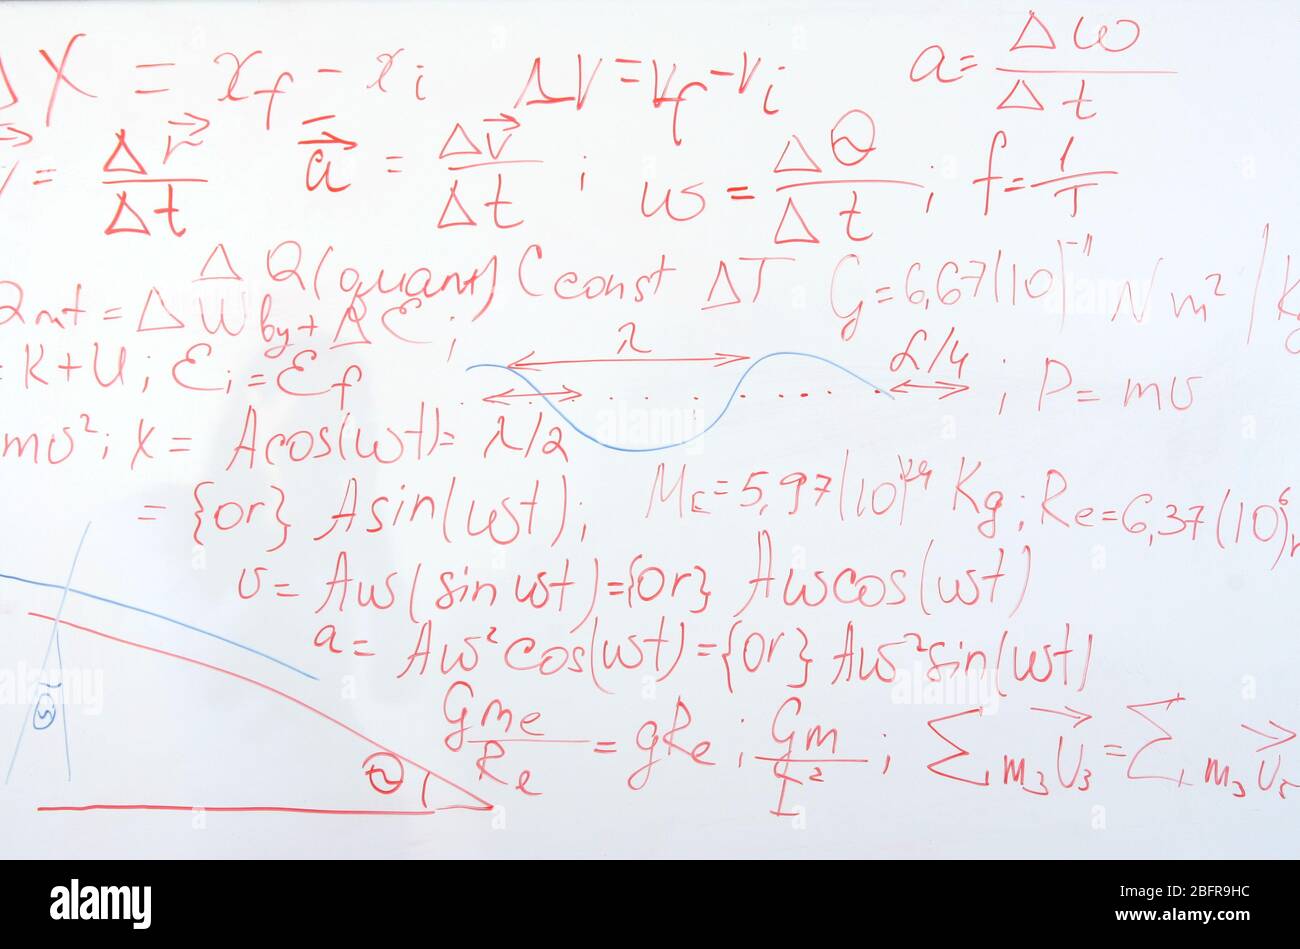 ΔX = x_f - x_i   ΔV = v_f - v_i   a = Δω/Δt
= Δr⃗/Δt   a⃗ = Δv⃗/Δt ;   ω = ΔQ/Δt ; f = 1/T
ΔQ(quant) C const ΔT   G = 6,67(10)^-11 N m² / Kg
= ΔW by + ΔE ;   λ   L/4
= K+U ; E_i = E_f   ; P = mv
mv² ; X = A cos(ωt) =   λ/2
= {or} A sin(ωt) ;   5,97(10)^24 Kg ; Re = 6,37(10)^6
v = Aω(sin ωt) = {or} Aω cos(ωt)
a = Aω² cos(ωt) = {or} Aω² sin(ωt)
G m_e / R_e = g R_e ; Gm / r² ; Σ m₃ v⃗₃ = Σ m₃ v⃗
alamy
Image ID: 2BFR9HC
www.alamy.com